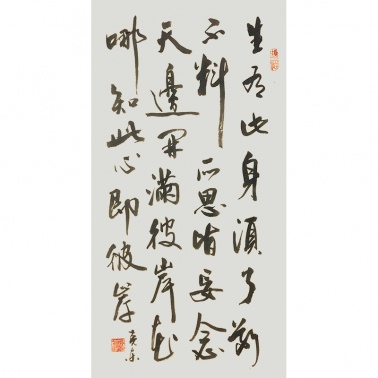 生此身須了斷
不料所思皆妄念
天邊開滿彼岸花
哪知此心即彼岸